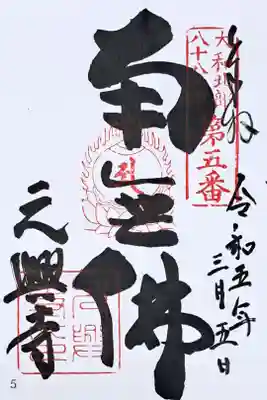 奉拝 令和五年
三月五日
大和北部
八十八
第五番
南無佛
元興寺
5